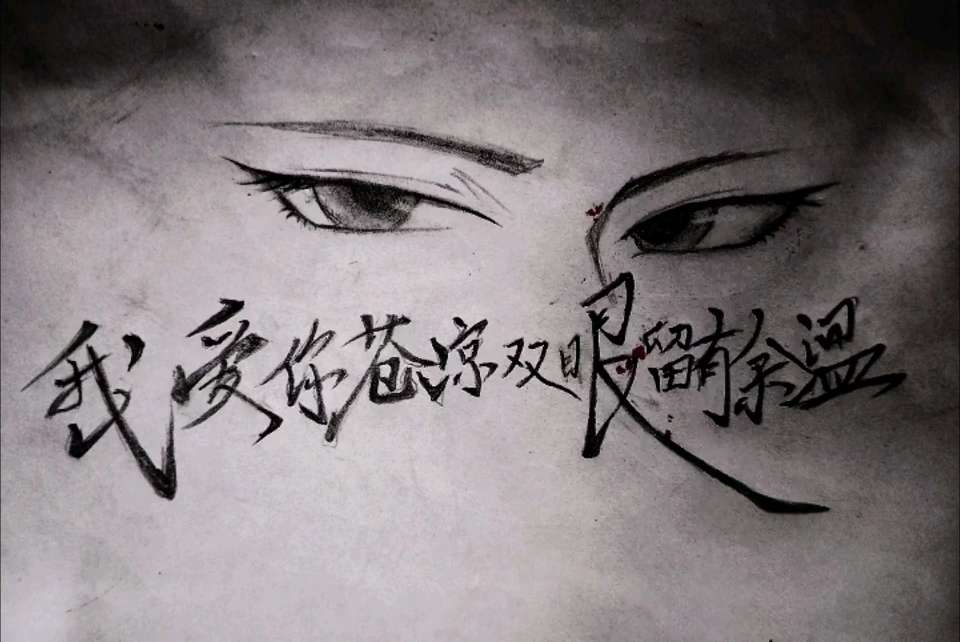 我爱你苍凉双眼留有余温